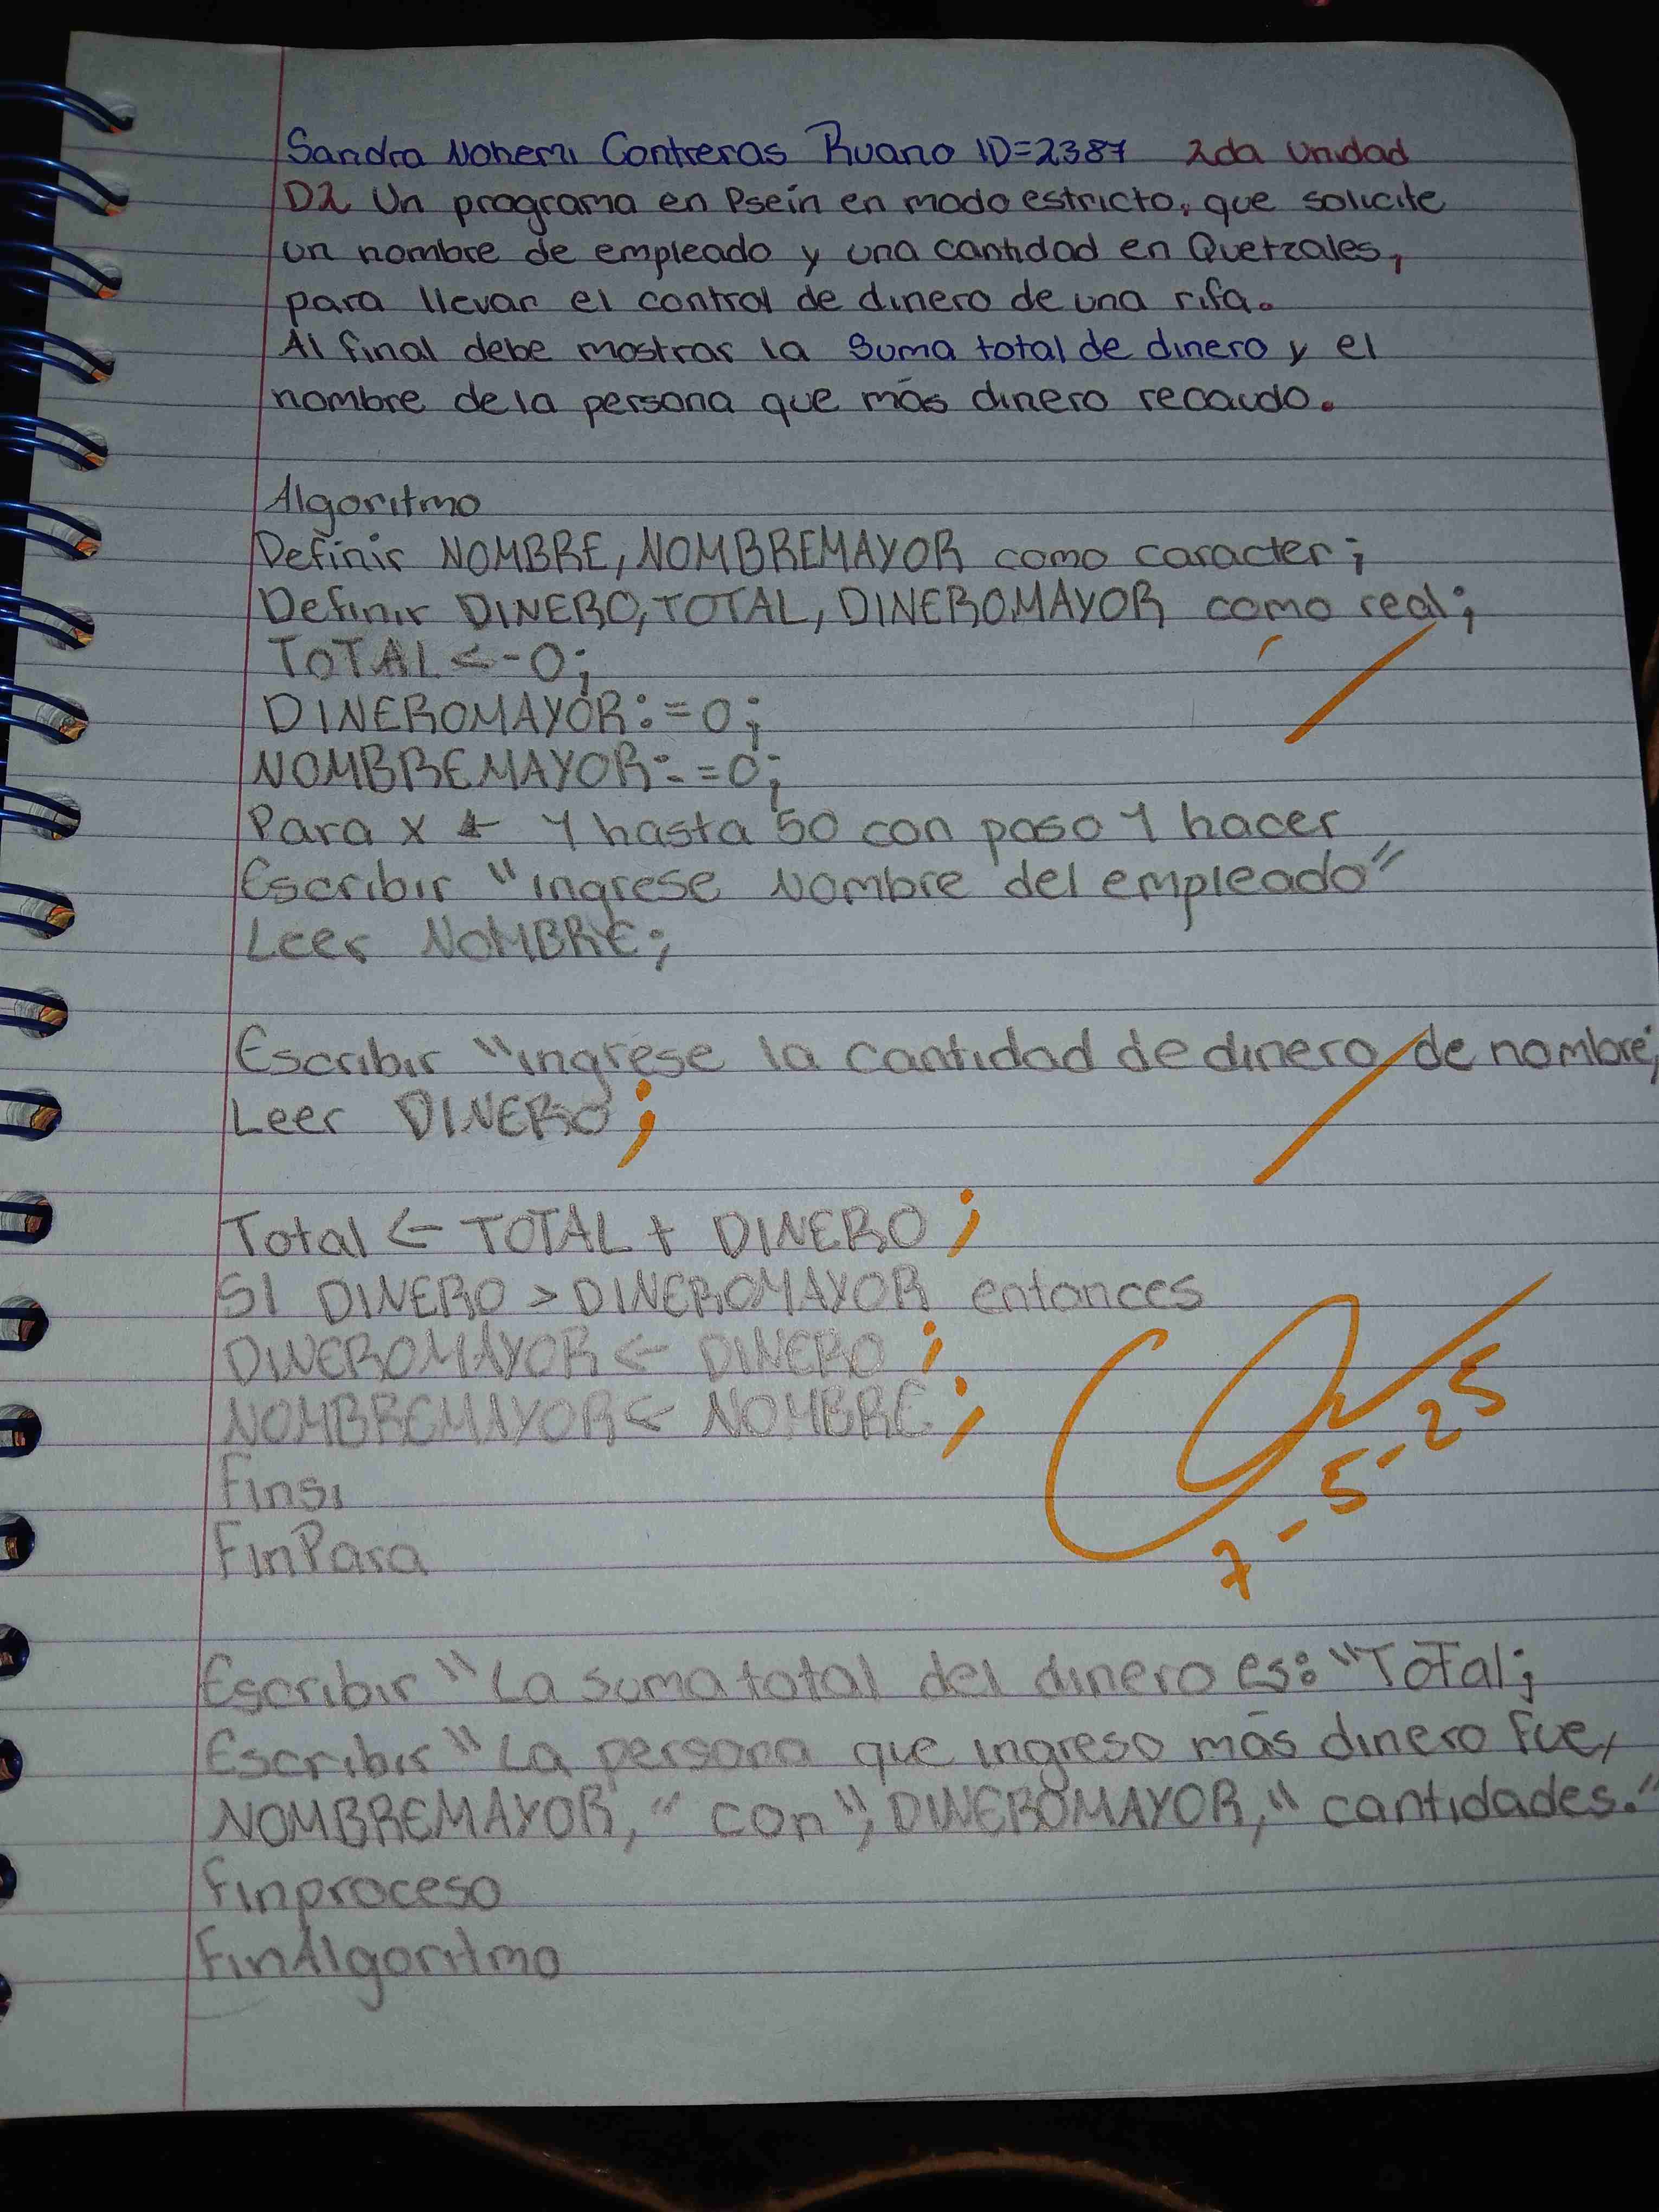 Sandra Nohemi Contreras Ruano ID=2387 2da Unidad
D2 Un programa en Psein en modo estricto, que solicite
un nombre de empleado y una cantidad en Quetzales,
para llevar el control de dinero de una rifa.
Al final debe mostrar la suma total de dinero y el
nombre de la persona que más dinero recaudo.
Algoritmo
Definir NOMBRE, NOMBREMAYOR como caracter;
Definir DINERO, TOTAL, DINEROMAYOR como real;
TOTAL <-0;
DINEROMAYOR:=0;
NOMBREMAYOR:=0;
Para x ← 1 hasta 50 con paso 1 hacer
Escribir "ingrese Nombre del empleado"
Leer NOMBRE;
Escribir "ingrese la cantidad de dinero de nombre;
Leer DINERO;
Total <- TOTAL + DINERO;
SI DINERO > DINEROMAYOR entonces
DINEROMAYOR <- DINERO;
NOMBREMAYOR <- NOMBRE;
Finsi
FinPara
7-5-25
Escribir "La suma total del dinero es: "Total;
Escribir "La persona que ingreso más dinero fue,
NOMBREMAYOR, "con", DINEROMAYOR, "cantidades."
Finproceso
FinAlgoritmo